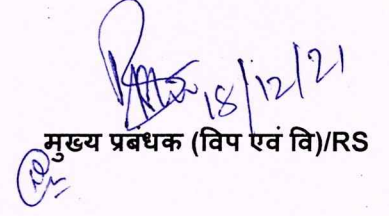 18/12/21
मुख्य प्रबंधक (विप एवं वि)/RS